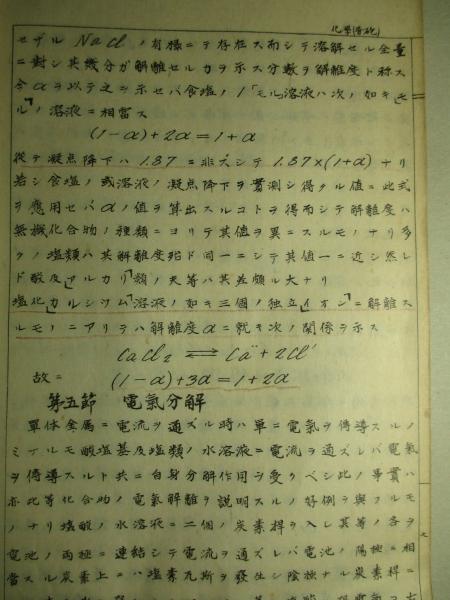 化學(菅砲)
セザル NaCl ノ有樣ニテ存在ス而シテ溶解セル全量
ニ對シ其幾分ガ解離セルカヲ示ス分數ヲ解離度ト称ス
今αヲ以テ之ヲ示セバ食塩ノ1「モル」溶液ハ次ノ如キ「モ
ル」ノ溶液ニ相當ス
(1-α)+2α=1+α
從テ凝点降下ハ1.87ニ非ズシテ1.87×(1+α)ナリ
若シ食塩ノ或溶液ノ凝点降下ヲ實測シ得タル値ニ此式
ヲ應用セバαノ値ヲ算出スルコトヲ得而シテ解離度ハ
無機化合物ノ種類ニヨリテ其値ヲ異ニスルモノナリ多
クノ塩類ハ其解離度殆ド同一ニシテ其値一ニ近シ然レ
ド酸及「アルカリ」類ノ夫等ハ其差頗ル大ナリ
塩化「カルシウム」溶液ノ如キ三個ノ独立「イオン」ニ解離ス
ルモノニアリテハ解離度αニ就キ次ノ関係ヲ示ス
CaCl₂ ⇄ Ca¨+2Cl′
故ニ (1-α)+3α=1+2α
第五節 電氣分解
單体金属ニ電流ヲ通ズル時ハ單ニ電氣ヲ傳導スルノ
ミナルモ酸塩基及塩類ノ水溶液ニ電流ヲ通ズレバ電氣
ヲ傳導スルト共ニ自身分解作用ヲ受クベシ此ノ事實ハ
亦此等化合物ノ電氣解離ヲ説明スルノ好例ヲ與フルモ
ノナリ塩酸ノ水溶液ニ二個ノ炭素桿ヲ入レ其等ノ各ヲ
電池ノ両極ニ連結シテ電流ヲ通ズレバ電池ノ陽極ニ相
當スル炭素上ニハ塩素瓦斯ヲ發生シ陰極ナル炭素桿ニ